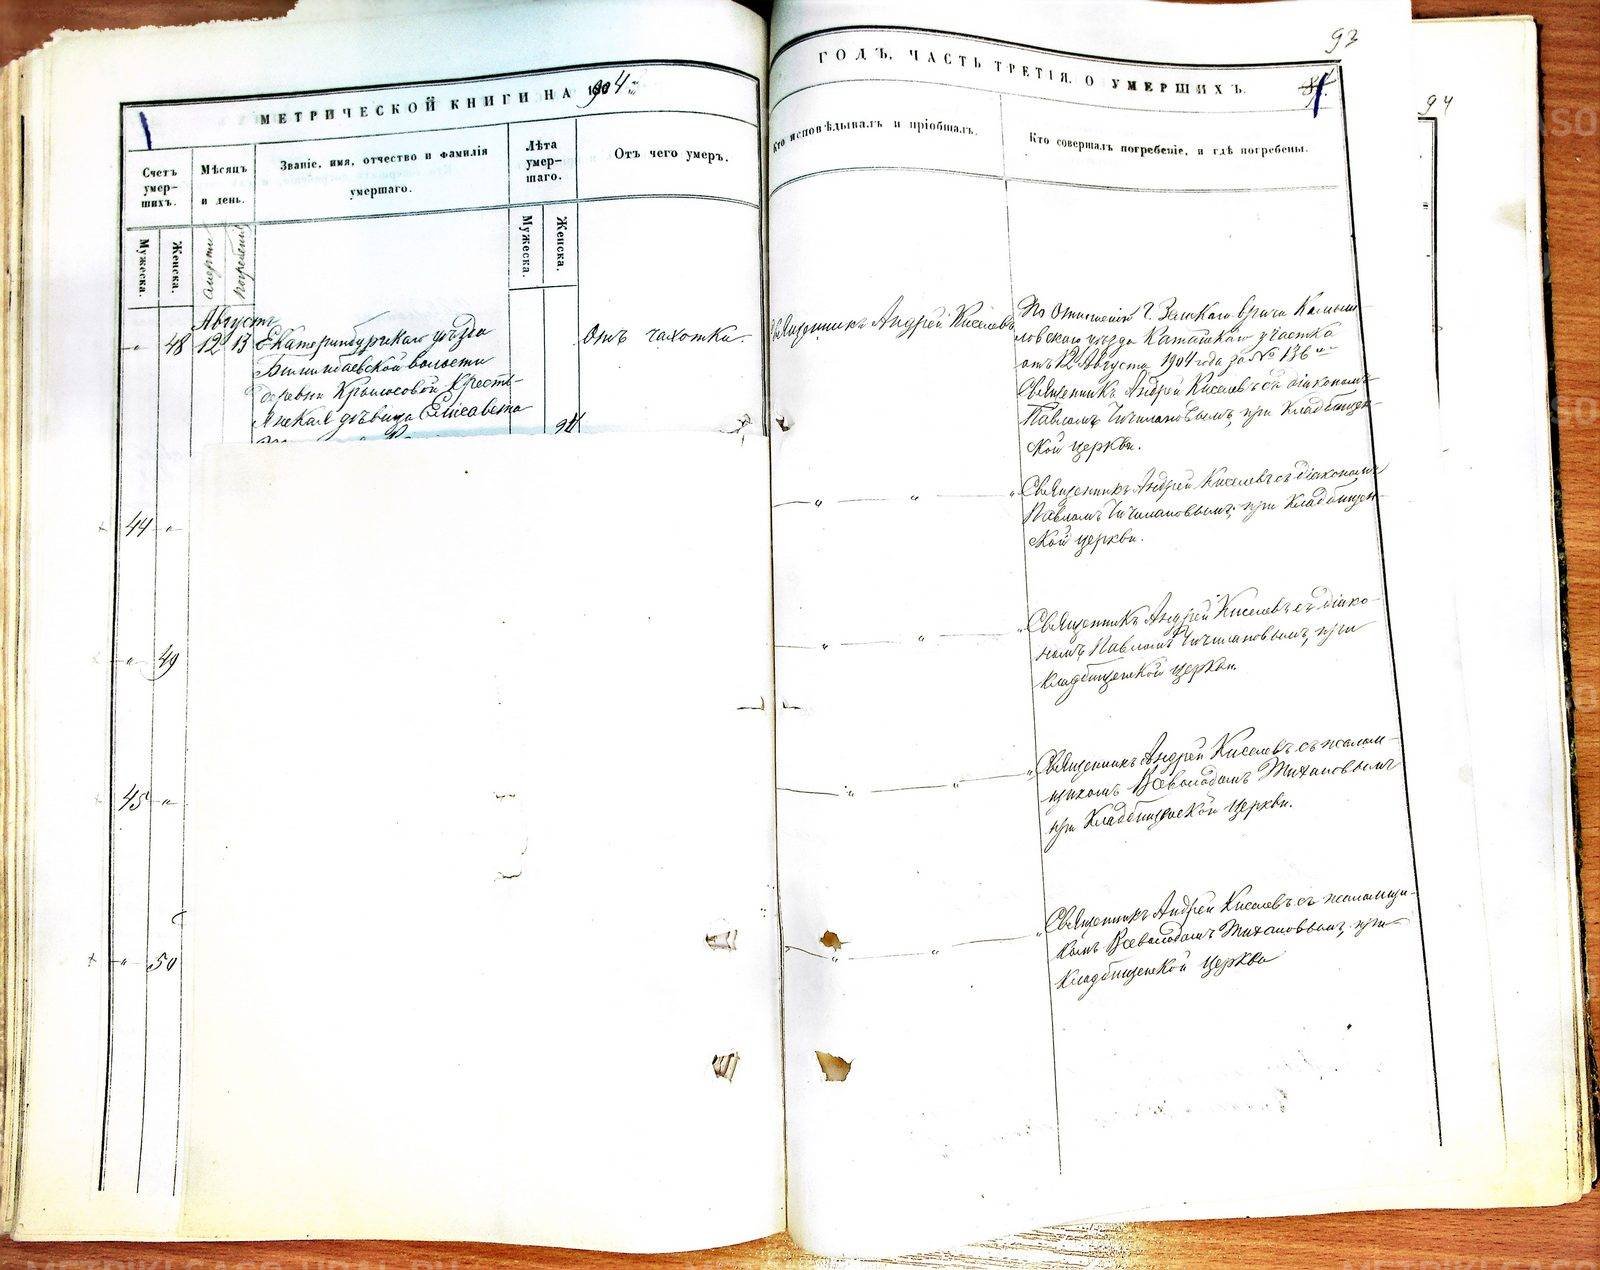 МЕТРИЧЕСКОЙ КНИГИ НА 1904й
ГОДЪ, ЧАСТЬ ТРЕТІЯ, О УМЕРШИХЪ.
93
94
Счетъ умер-шихъ.
Мѣсяцъ и день.
Званіе, имя, отчество и фамилія умершаго.
Лѣта умер-шаго.
Отъ чего умеръ.
Кто исповѣдывалъ и пріобщалъ.
Кто совершалъ погребеніе, и гдѣ погребены.
Мужеска.
Женска.
смерти
погребенія
Мужеска.
Женска.
Августъ
48 12 13
Екатеринбургскаго уѣзда
Билимбаевской волости
деревни Крылосовой Кресть-
янская дѣвица Елисавета
24
Отъ чахотки.
Священникъ Андрей Киселевъ
По Отношенію Г. Земскаго врача Камыш-
ловскаго уѣзда Каташкаго участка
отъ 12 Августа 1904 года за № 136
Священникъ Андрей Киселевъ съ діакономъ
Павломъ Чичилановымъ, при Кладбищен-
ской церкви.
44
Священникъ Андрей Киселевъ съ діакономъ
Павломъ Чичилановымъ, при Кладбищен-
ской церкви.
49
Священникъ Андрей Киселевъ съ діако-
номъ Павломъ Чичилановымъ, при
Кладбищенской церкви.
45
Священникъ Андрей Киселевъ съ псалом-
щикомъ Всеволодомъ Тихановымъ
при Кладбищенской церкви.
50
Священникъ Андрей Киселевъ съ псаломщи-
комъ Всеволодомъ Тихановымъ, при
Кладбищенской церкви